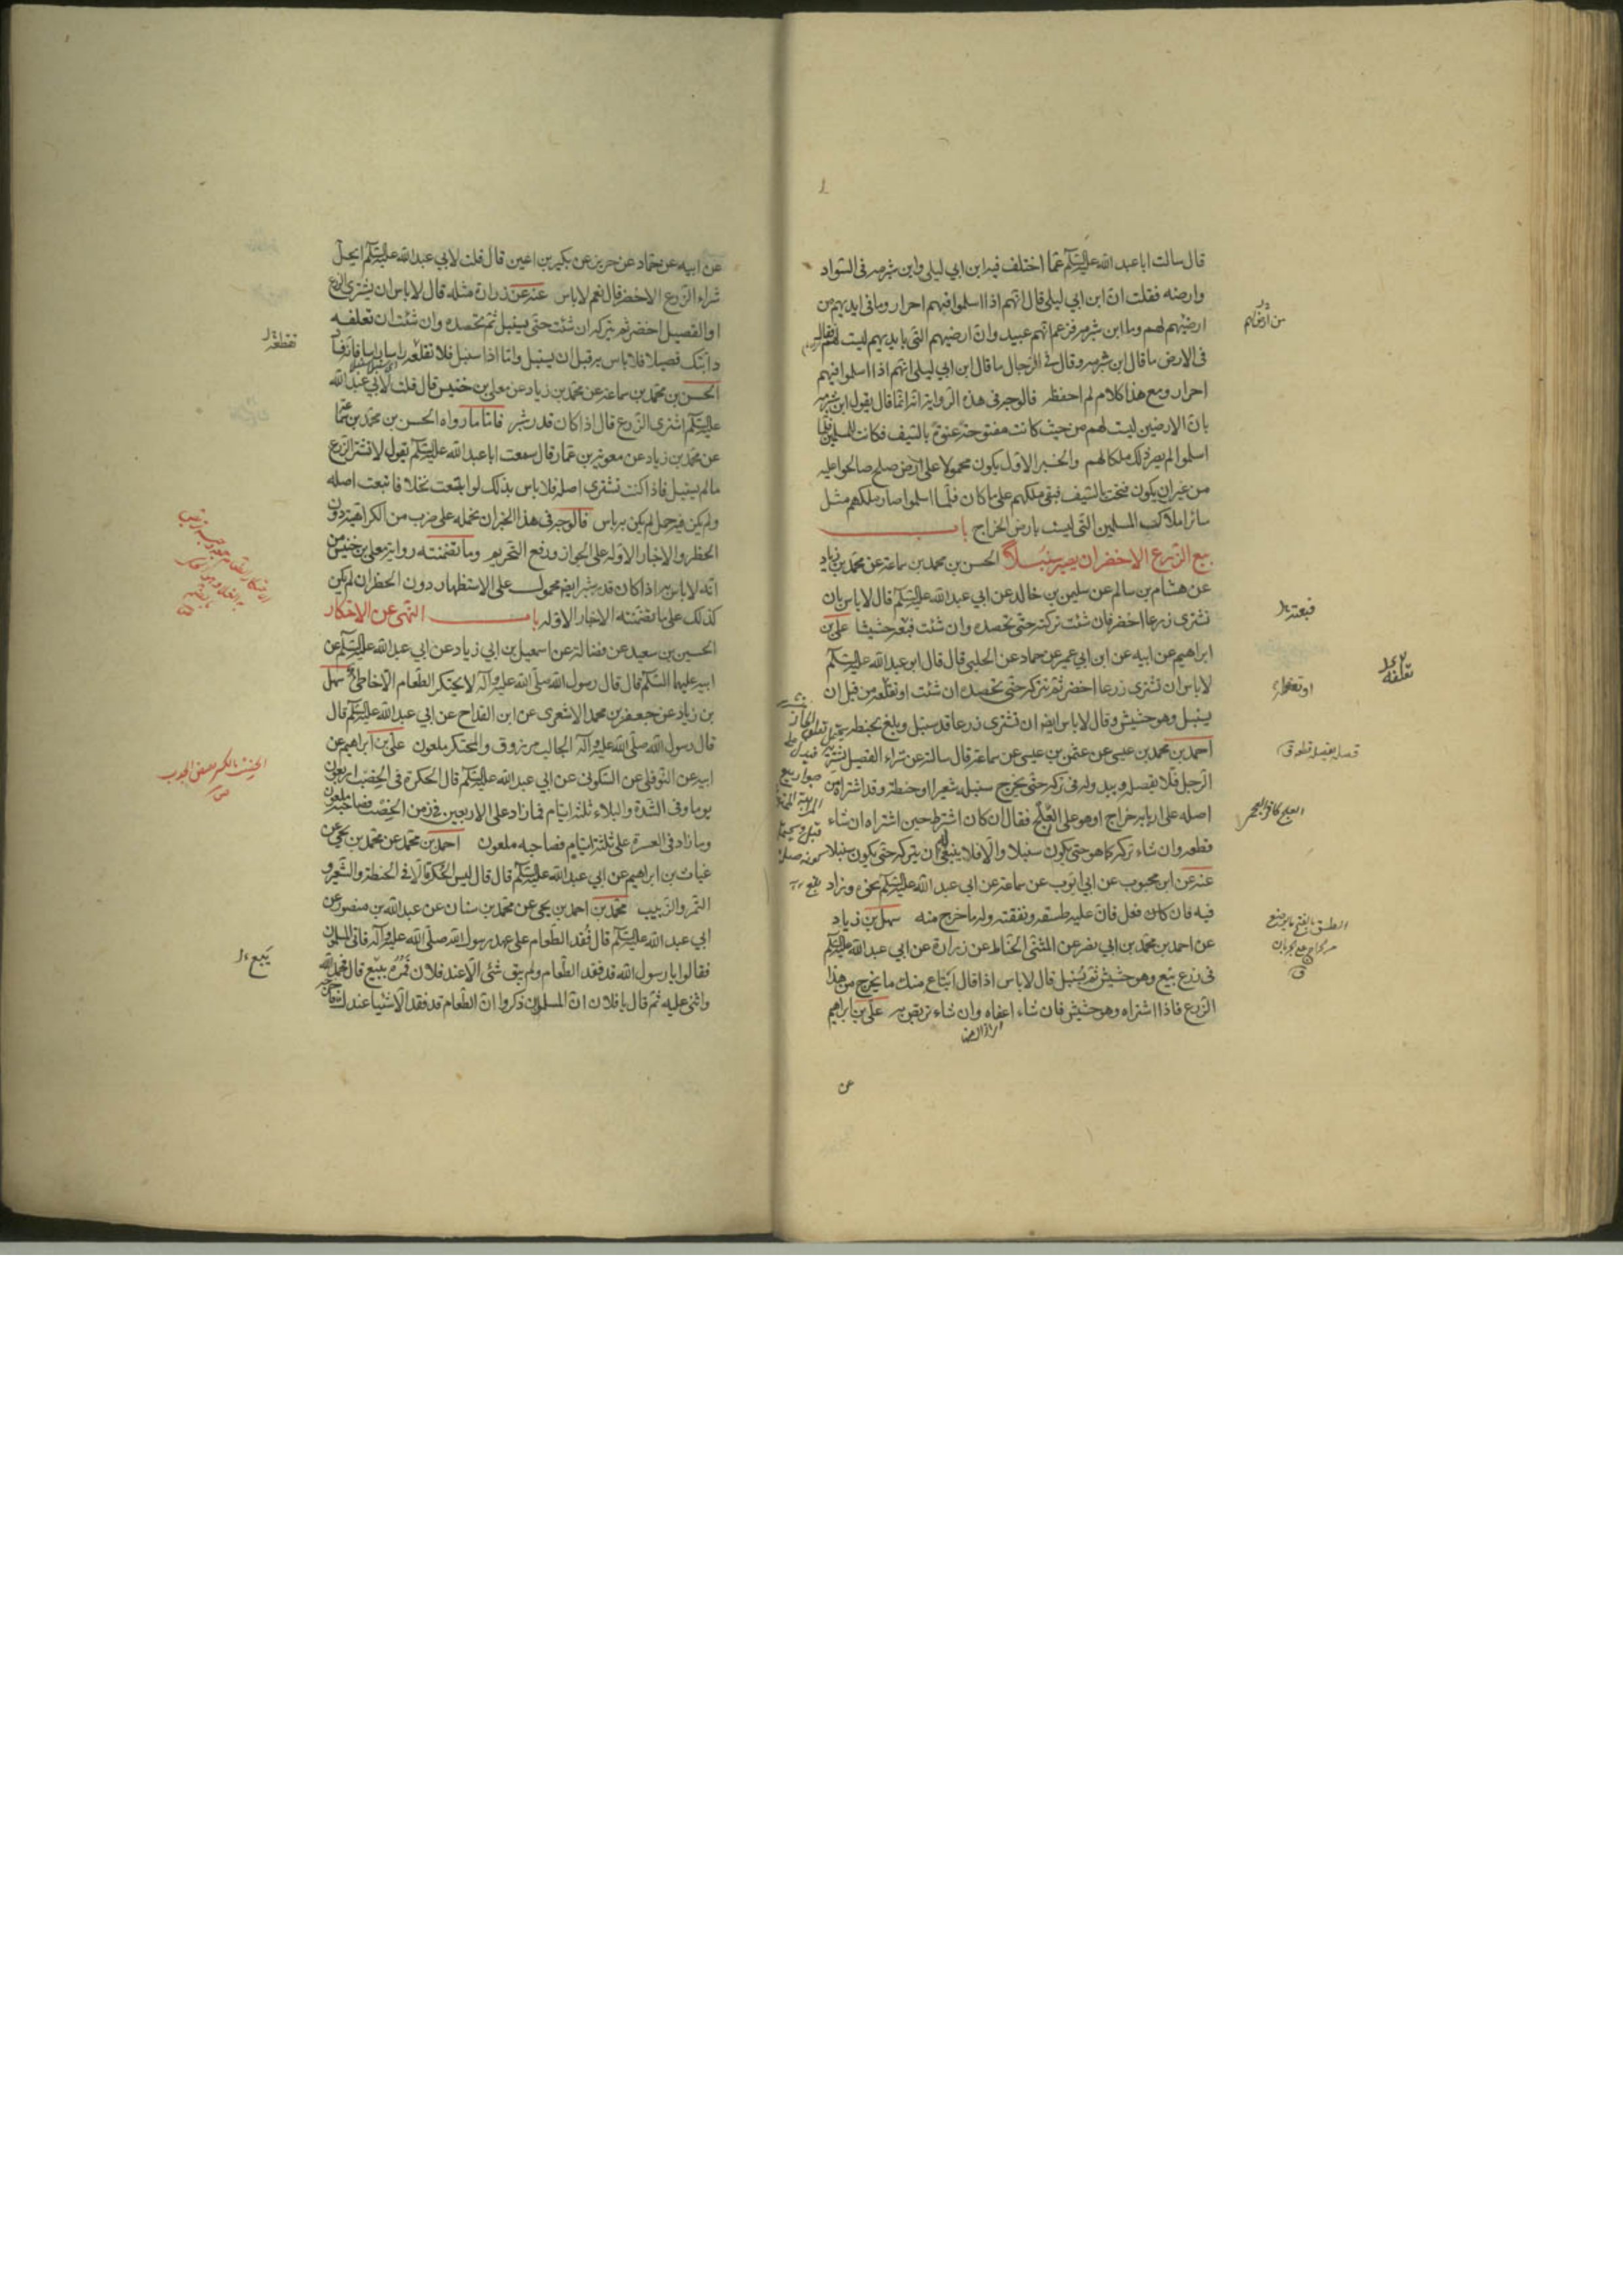 قال سالت ابا عبد الله عليه السلام عما اختلف فيه ابن ابي ليلى وابن شبرمه فى السواد
وارضه فقلت ان ابن ابي ليلى قال انهم اذا اسلموا فهم احرار وما فى ايديهم من
ارضهم لهم واما ابن شبرمه فزعم انهم عبيد وان ارضيهم التى بايديهم ليست لهم فقال
فى الارض ما قال ابن شبرمه وقال فى الرجال ما قال ابن ابي ليلى انهم اذا اسلموا فهم
احرار ومع هذا كلام لم احفظه فالوجه فى هذه الرواية انه انما قال بقول ابن شبرمه
بان الارضين ليست لهم من حيث كانت مفتوحة عنوة بالسيف فكانت للمسلمين فلما
اسلموا لم يصر ذلك ملكا لهم والخبر الاول يكون محمولا على ارض صلح صالحوا عليه
من غير ان يكون فتحت بالسيف فبقى ملكهم على ما كان فلما اسلموا صار ملكهم مثل
سائر املاك المسلمين التى ليست بارض الخراج باب
بيع الزرع الاخضر ان يصير سنبلا الحسن بن محمد بن سماعة عن محمد بن زياد
عن هشام بن سالم عن سليمن بن خالد عن ابي عبد الله عليه السلام قال لا باس بان
تشترى زرعا اخضر فان شئت تركته حتى تحصده وان شئت فبعه حشيشا على بن
ابراهيم عن ابيه عن ابن ابي عمير عن حماد عن الحلبى قال قال ابو عبد الله عليه السلام
لا باس ان تشترى زرعا اخضر ثم تتركه حتى تحصده ان شئت او تقلعه من قبل ان
يسنبل وهو حشيش وقال لا باس ايضا ان تشترى زرعا قد سنبل وبلغ بحنطة
احمد بن محمد بن عيسى عن عثمن بن عيسى عن سماعة قال سالته عن شراء القصيل يشتريه
الرجل فلا يقصله ويبدو له فى تركه حتى يخرج سنبله شعيرا او حنطة وقد اشتراه من
اصله على اربابه خراج او هو على العلج فقال ان كان اشترط حين اشتراه ان شاء
قطعه وان شاء تركه كما هو حتى يكون سنبلا والا فلا ينبغى له ان يتركه حتى يكون سنبلا
عنه عن ابن محبوب عن ابي ايوب عن سماعة عن ابي عبد الله عليه السلام نحوه وزاد
فيه فان كان فعل فان عليه طسقه ونفقته وله ما خرج منه سهل بن زياد
عن احمد بن محمد بن ابي نصر عن المثنى الحناط عن زرارة عن ابي عبد الله عليه السلام
فى زرع بيع وهو حشيش ثم سنبل قال لا باس اذا قال ابتاع منك ما يخرج من هذا
الزرع فاذا اشتراه وهو حشيش فان شاء اعفاه وان شاء تربص به على بن ابراهيم
عن
فبعته
او تعلفه
الطسق بالفتح ما يوضع
عن ابيه عن حماد عن حريز عن بكير بن اعين قال قلت لابي عبد الله عليه السلام ايحل
شراء الزرع الاخضر قال نعم لا باس عنه عن زرارة مثله قال لا باس ان يشترى الزرع
او القصيل اخضر ثم يتركه ان شئت حتى يسنبل ثم تحصده وان شئت ان تعلف
دابتك قصيلا فلا باس به قبل ان يسنبل واما اذا سنبل فلا تعلفه
الحسن بن محمد بن سماعة عن محمد بن زياد عن معلى بن خنيس قال قلت لابي عبد الله
عليه السلام اشترى الزرع قال اذا كان قدر شبر فاما ما رواه الحسن بن محمد بن سماعة
عن محمد بن زياد عن معوية بن عمار قال سمعت ابا عبد الله عليه السلام يقول لا تشتر الزرع
ما لم يسنبل فاذا كنت تشترى اصله فلا باس بذلك لو ابتعت نخلا فابتعت اصله
ولم يكن فيه حمل لم يكن به باس فالوجه فى هذا الخبر ان نحمله على ضرب من الكراهية دون
الحظر والاخبار الاوله على الجواز ورفع التحريم وما تضمنته رواية معلى بن خنيس من
انه لا باس به اذا كان قدر شبر ايضا محمول على الاستظهار دون الحظر ان لم يكن
كذلك على ما تضمنته الاخبار الاوله باب النهى عن الاحتكار
الحسين بن سعيد عن فضالة عن اسمعيل بن ابي زياد عن ابي عبد الله عليه السلام عن
ابيه عليهما السلم قال قال رسول الله صلى الله عليه وآله لا يحتكر الطعام الا خاطئ سهل
بن زياد عن جعفر بن محمد الاشعرى عن ابن القداح عن ابي عبد الله عليه السلام قال
قال رسول الله صلى الله عليه وآله الجالب مرزوق والمحتكر ملعون على بن ابراهيم عن
ابيه عن النوفلى عن السكونى عن ابي عبد الله عليه السلام قال الحكرة فى الخصب اربعون
يوما وفى الشدة والبلاء ثلثة ايام فما زاد على الاربعين فى زمن الخصب فصاحبه ملعون
وما زاد فى العسرة على ثلثة ايام فصاحبه ملعون احمد بن محمد عن محمد بن يحيى عن
غياث بن ابراهيم عن ابي عبد الله عليه السلام قال قال ليس الحكرة الا فى الحنطة والشعير و
التمر والزبيب محمد بن احمد بن يحيى عن محمد بن سنان عن عبد الله بن منصور عن
ابي عبد الله عليه السلام قال نفد الطعام على عهد رسول الله صلى الله عليه وآله فاتى المسلمون
فقالوا يا رسول الله قد فقد الطعام ولم يبق شئ الا عند فلان فمره ببيع قال فحمد الله
واثنى عليه ثم قال يا فلان ان المسلمين ذكروا ان الطعام قد فقد الا شيئا عندك
يبيع